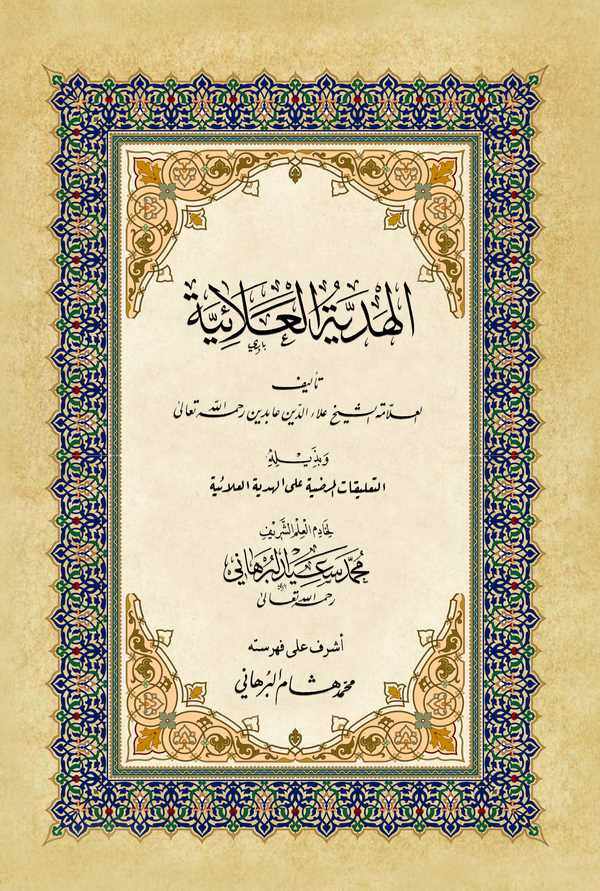 الهَديَّةُ العَلائيَّة
تأليف
العلّامة الشيخ علاء الدّين عابدين رحمه الله تعالى
وَبذَيلِهِ
التعليقات المرضية على الهدية العلائية
لِخَادِمِ العِلْمِ الشَّرِيفِ
مُحمَّد سَعيد البُرهَاني
رحمه الله تعالى
أشرف على فهرسته
محمّد هشام البُرهاني